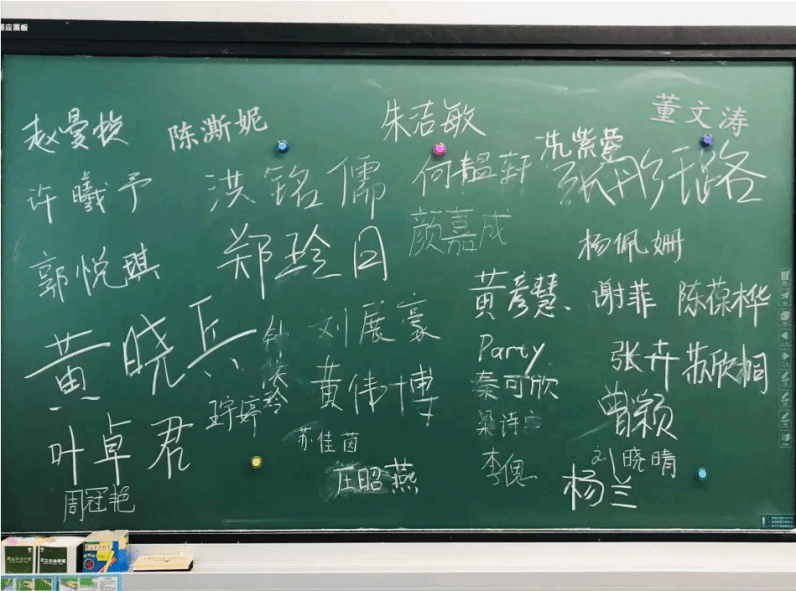 赵曼
陈澌妮
朱洁敏
董文涛
冼紫莹
许曦予
洪铭儒
何韫轩
张彤璐
颜嘉成
郭悦琪
郑玲日
杨佩姗
黄彦慧
谢菲
陈葆桦
黄晓兵
刘展豪
Party
张卉
苏欣桐
黄伟博
秦可欣
曾颖
叶卓君
婷
苏佳茵
梁诗
李
刘晓晴
庄昭燕
杨兰
周冠艳